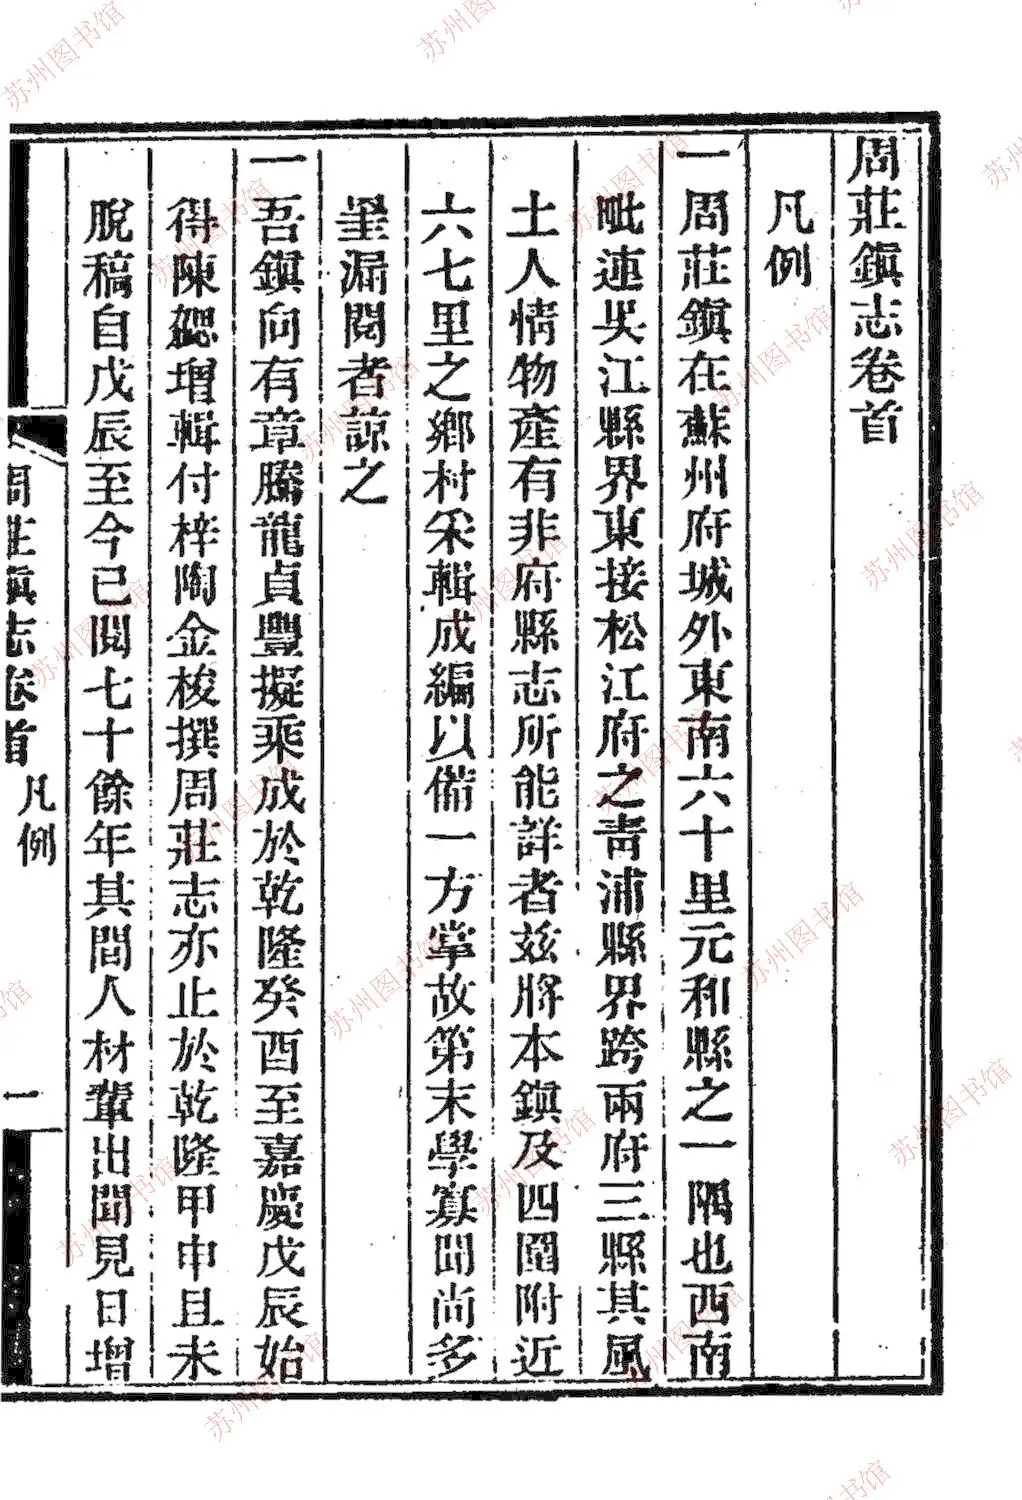 周莊鎭志卷首
凡例
一 周莊鎭在蘇州府城外東南六十里元和縣之一隅也西南
毗連吳江縣界東接松江府之靑浦縣界跨兩府三縣其風
土人情物產有非府縣志所能詳者茲將本鎭及四圍附近
六七里之鄉村采輯成編以備一方掌故第末學寡聞尚多
罣漏閱者諒之
一 吾鎭向有章騰龍貞豐擬乘成於乾隆癸酉至嘉慶戊辰始
得陳勰增輯付梓陶金梭撰周莊志亦止於乾隆甲申且未
脫稿自戊辰至今已閱七十餘年其間人材輩出聞見日增
周莊鎭志卷首 凡例 一
苏州图书馆